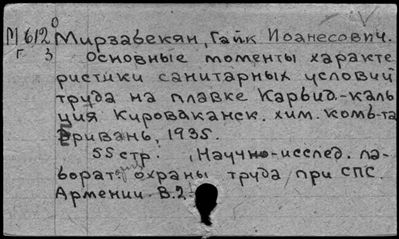 М 612 0 Мирзабекян, Гайк Иоанесович.
Г 3 Основные моменты характе
ристики санитарных условий
труда на плавке Карбид-каль
ция Кировакансk. хим. комб-та
Ереван, 1935.
55 стр. (Научно-исслед. ла-
борат. охраны труда при СПС.
Армении. В.2